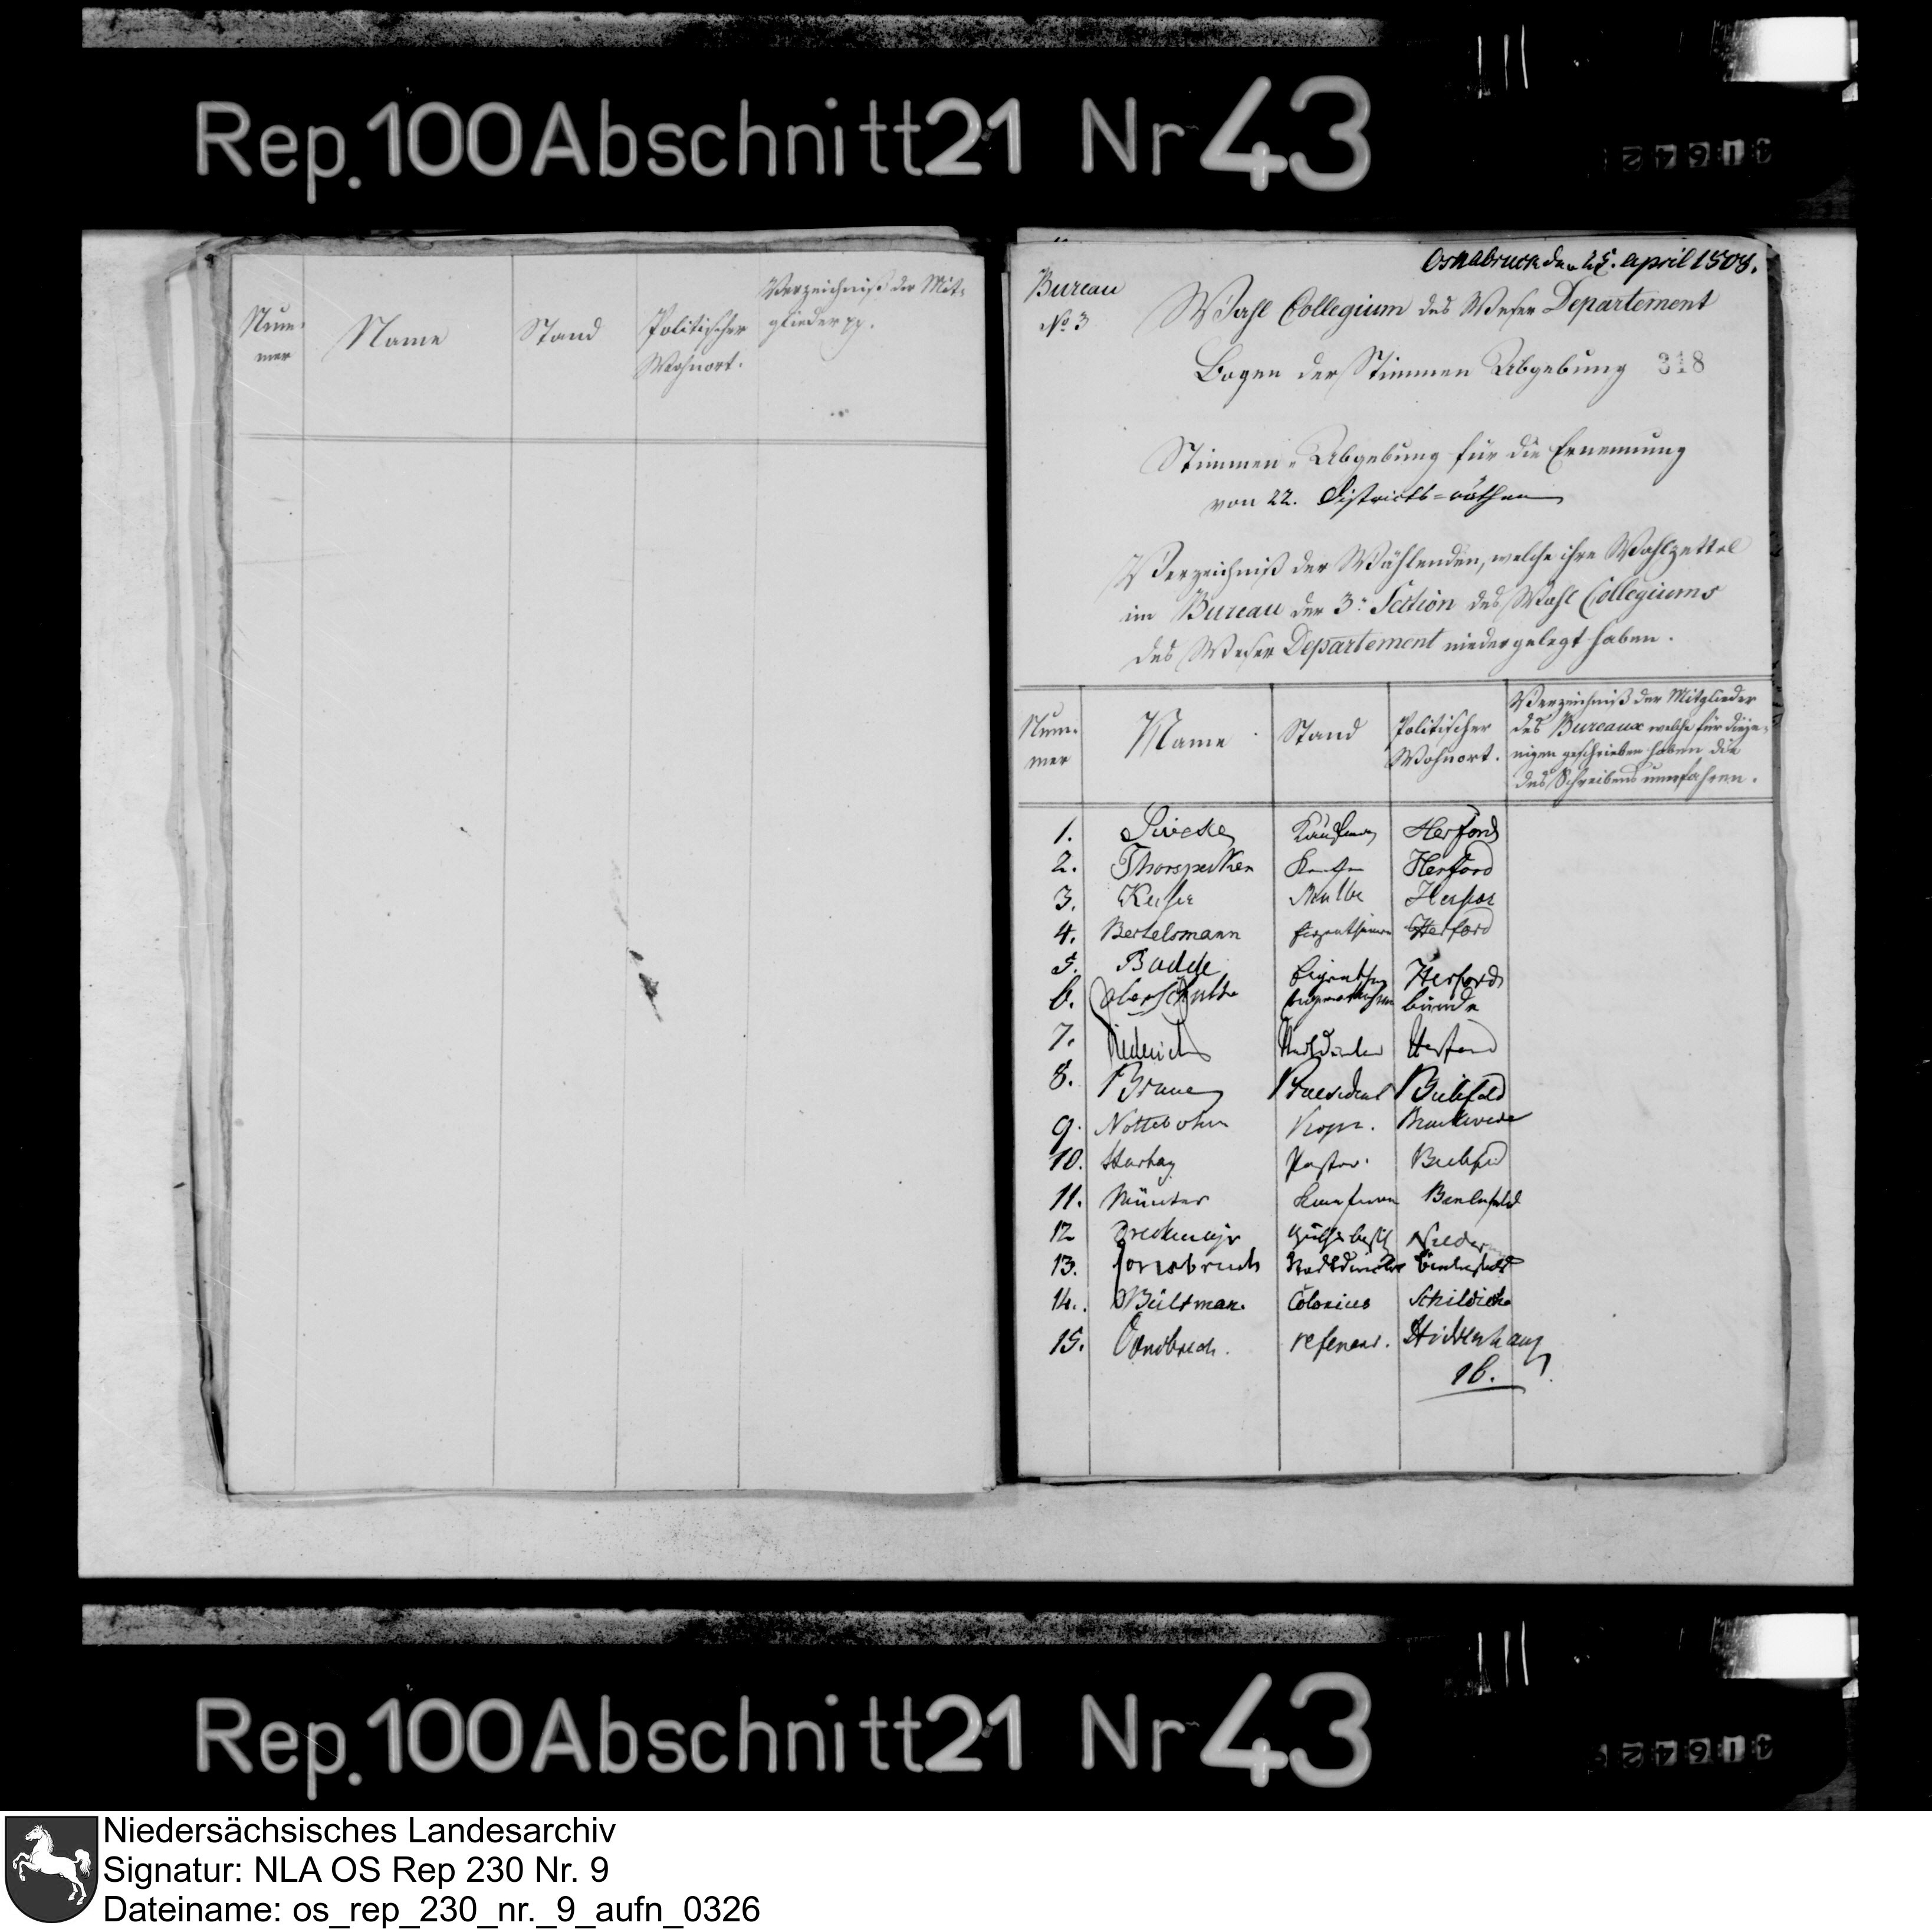 Rep. 100 Abschnitt 21 Nr 43
Num-
mer
Name
Stand
Politischer
Wohnort.
Verzeichniß der Mit-
glieder pp.
Osnabruck den 25. april 1808.
Bureau
No 3
Wahl Collegium des Weser Departement
Bogen der Stimmen Abgebung 318
Stimmen-Abgebung für die Ernennung
von 22. Districts-räthen
Verzeichniß der Wählenden, welche ihre Wahlzettel
im Bureau der 3. Section des Wahl Collegiums
des Weser Departement niedergelegt haben.
Num-
mer
Name
Stand
Politischer
Wohnort.
Verzeichniß der Mitglieder
des Bureaux welche für dieje-
nigen geschrieben haben die
des Schreibens unerfahren.
1. Kaufman Herford
2. Thorspecken Herford
3.
4. Bertelsmann Herford
5. Budde Herford
6. Bünde
7. Diederichs Herford
8. Praesident Bielefeld
9. Nottebohm Brackwede
10. Hartog Pastor. Bielefeld
11. Münter Kaufmann Bielefeld
12
13. Consbruch Stadtdirector Bielefeld
14. Bültman. Colonus Schildesche
15. Consbruch. referend. Hiddenhausen
16.
Rep. 100 Abschnitt 21 Nr 43
Niedersächsisches Landesarchiv
Signatur: NLA OS Rep 230 Nr. 9
Dateiname: os_rep_230_nr._9_aufn_0326